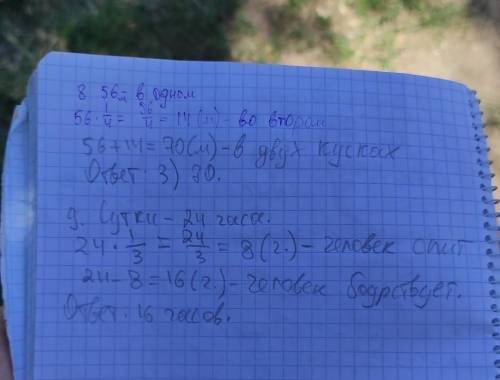 8 56м в одном
56·1/4 = 56/4 = 14 (м) - во втором
56+14=70(м)-в двух кусках
Ответ: 3) 70.
9. Сутки - 24 часа.
24 · 1/3 = 24/3 = 8 (ч.) - человек спит
24-8=16(ч.)-человек бодрствует.
Ответ: 16 часов.